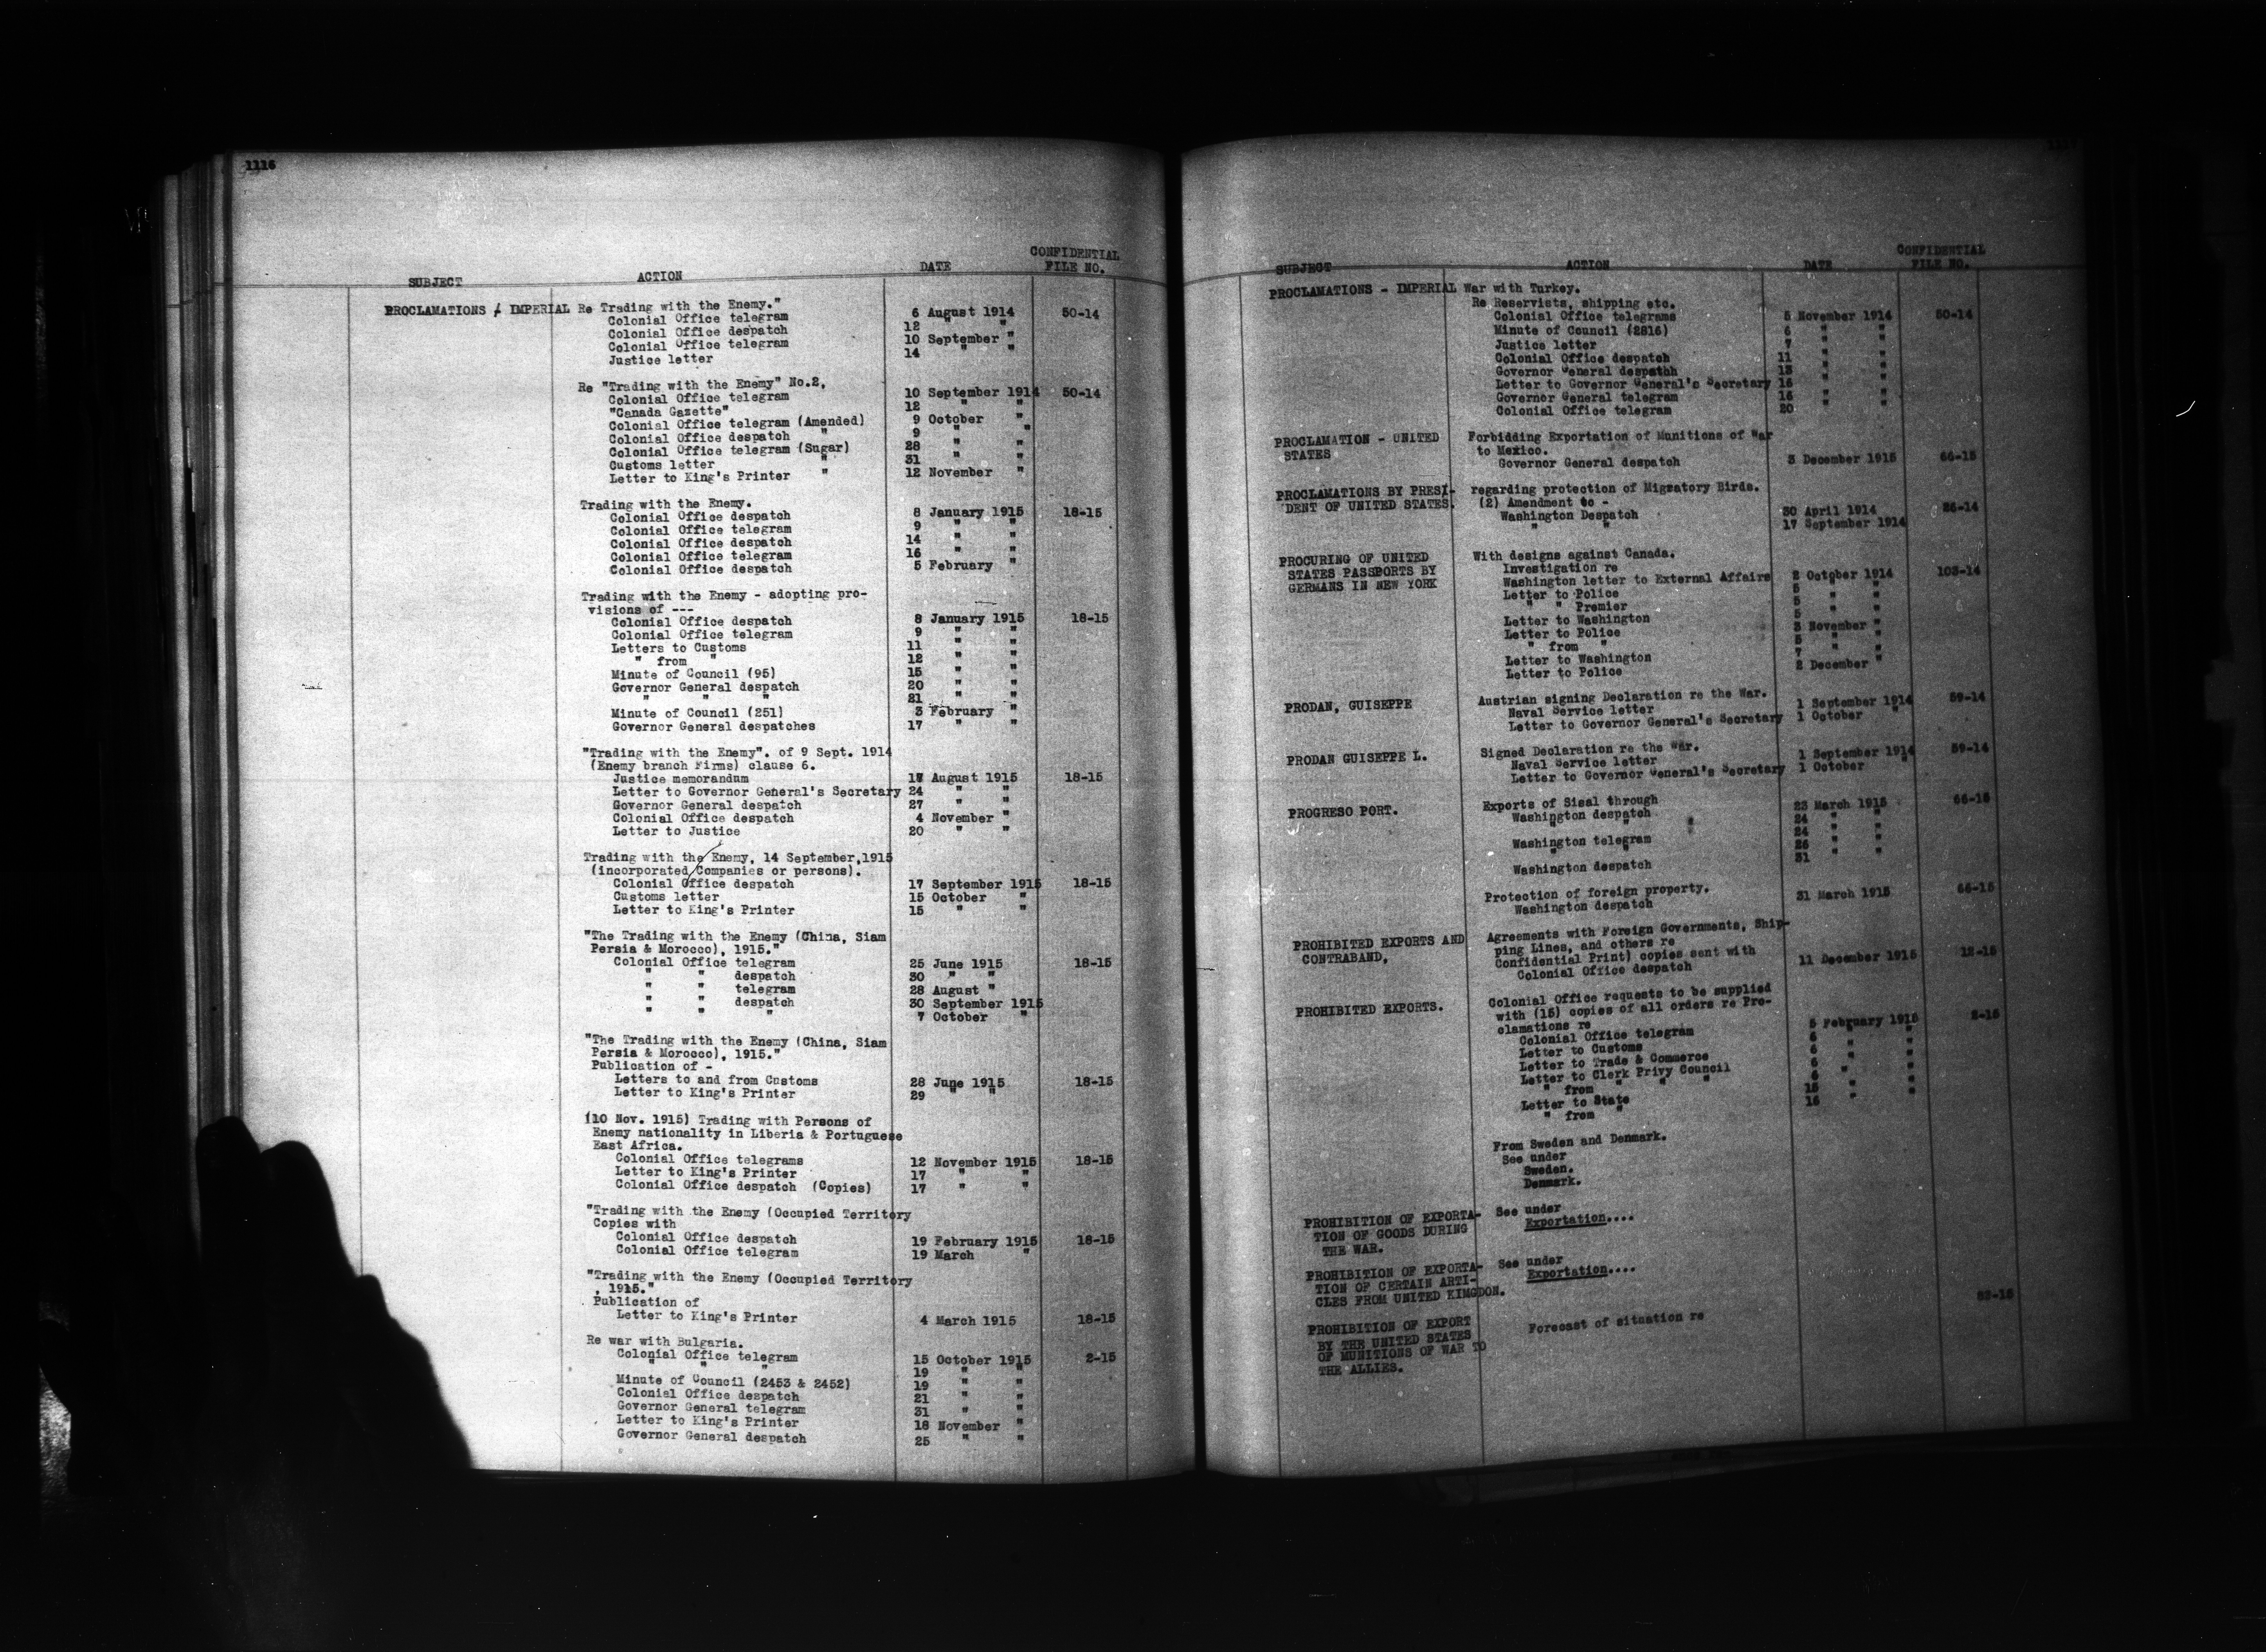 1116
SUBJECT ACTION DATE CONFIDENTIAL FILE NO.
PROCLAMATIONS / IMPERIAL Re Trading with the Enemy."
Colonial Office telegram 6 August 1914 50-14
Colonial Office despatch 12 " "
Colonial Office telegram 10 September "
Justice letter 14 " "
Re "Trading with the Enemy" No.2,
Colonial Office telegram 10 September 1914 50-14
"Canada Gazette" 12 " "
Colonial Office telegram (Amended) 9 October "
Colonial Office despatch " 9 " "
Colonial Office telegram (Sugar) 28 " "
Customs letter " 31 " "
Letter to King's Printer " 12 November "
Trading with the Enemy.
Colonial Office despatch 8 January 1915 18-15
Colonial Office telegram 9 " "
Colonial Office despatch 14 " "
Colonial Office telegram 16 " "
Colonial Office despatch 5 February "
Trading with the Enemy - adopting pro-
visions of ---
Colonial Office despatch 8 January 1915 18-15
Colonial Office telegram 9 " "
Letters to Customs 11 " "
" from " 12 " "
Minute of Council (95) 15 " "
Governor General despatch 20 " "
" " " 21 " "
Minute of Council (251) 3 February "
Governor General despatches 17 " "
"Trading with the Enemy". of 9 Sept. 1914
(Enemy branch Firms) clause 6.
Justice memorandum 17 August 1915 18-15
Letter to Governor General's Secretary 24 " "
Governor General despatch 27 " "
Colonial Office despatch 4 November "
Letter to Justice 20 " "
Trading with the Enemy, 14 September,1915
(incorporated Companies or persons).
Colonial Office despatch 17 September 1915 18-15
Customs letter 15 October "
Letter to King's Printer 15 " "
"The Trading with the Enemy (China, Siam
Persia & Morocco), 1915."
Colonial Office telegram 25 June 1915 18-15
" " despatch 30 " "
" " telegram 28 August "
" " despatch 30 September 1915
" " " 7 October "
"The Trading with the Enemy (China, Siam
Persia & Morocco), 1915."
Publication of -
Letters to and from Customs 28 June 1915 18-15
Letter to King's Printer 29 " "
(10 Nov. 1915) Trading with Persons of
Enemy nationality in Liberia & Portuguese
East Africa.
Colonial Office telegrams 12 November 1915 18-15
Letter to King's Printer 17 " "
Colonial Office despatch (Copies) 17 " "
"Trading with the Enemy (Occupied Territory
Copies with
Colonial Office despatch 19 February 1915 18-15
Colonial Office telegram 19 March "
"Trading with the Enemy (Occupied Territory
, 1915."
Publication of
Letter to King's Printer 4 March 1915 18-15
Re war with Bulgaria.
Colonial Office telegram 15 October 1915 2-15
" " " 19 " "
Minute of Council (2453 & 2452) 19 " "
Colonial Office despatch 21 " "
Governor General telegram 31 " "
Letter to King's Printer 18 November "
Governor General despatch 25 " "
SUBJECT ACTION DATE CONFIDENTIAL FILE NO.
PROCLAMATIONS - IMPERIAL War with Turkey.
Re Reservists, shipping etc.
Colonial Office telegrams 5 November 1914 50-14
Minute of Council (2816) 6 " "
Justice letter 7 " "
Colonial Office despatch 11 " "
Governor General despatch 13 " "
Letter to Governor General's Secretary 16 " "
Governor General telegram 16 " "
Colonial Office telegram 20 " "
PROCLAMATION - UNITED Forbidding Exportation of Munitions of War
STATES to Mexico.
Governor General despatch 3 December 1915 66-15
PROCLAMATIONS BY PRESI- regarding protection of Migratory Birds.
DENT OF UNITED STATES. (2) Amendment to -
Washington Despatch 30 April 1914 86-14
" " 17 September 1914
PROCURING OF UNITED With designs against Canada.
STATES PASSPORTS BY Investigation re
GERMANS IN NEW YORK Washington letter to External Affairs 2 October 1914 103-14
Letter to Police 5 " "
" " Premier 5 " "
Letter to Washington 5 " "
Letter to Police 3 November "
" from " 5 " "
Letter to Washington 7 " "
Letter to Police 2 December "
PRODAN, GUISEPPE Austrian signing Declaration re the War.
Naval Service letter 1 September 1914 59-14
Letter to Governor General's Secretary 1 October "
PRODAN GUISEPPE L. Signed Declaration re the War.
Naval Service letter 1 September 1914 59-14
Letter to Governor General's Secretary 1 October "
PROGRESO PORT. Exports of Sisal through
Washington despatch 23 March 1915 66-15
" " 24 " "
Washington telegram 24 " "
" " 26 " "
Washington despatch 31
Protection of foreign property.
Washington despatch 31 March 1915 66-15
PROHIBITED EXPORTS AND Agreements with Foreign Governments, Ship-
CONTRABAND, ping Lines, and others re
Confidential Print) copies sent with
Colonial Office despatch 11 December 1915 12-15
PROHIBITED EXPORTS. Colonial Office requests to be supplied
with (15) copies of all orders re Pro-
clamations re
Colonial Office telegram 5 February 1915 2-15
Letter to Customs 6 " "
Letter to Trade & Commerce 6 " "
Letter to Clerk Privy Council 6 " "
" from " " " 6 " "
Letter to State 15 " "
" from " 16 " "
From Sweden and Denmark.
See under
Sweden.
Denmark.
PROHIBITION OF EXPORTA- See under
TION OF GOODS DURING Exportation....
THE WAR.
PROHIBITION OF EXPORTA- See under
TION OF CERTAIN ARTI- Exportation....
CLES FROM UNITED KIMGDON.
PROHIBITION OF EXPORT Forecast of situation re 82-15
BY THE UNITED STATES
OF MUNITIONS OF WAR TO
THE ALLIES.